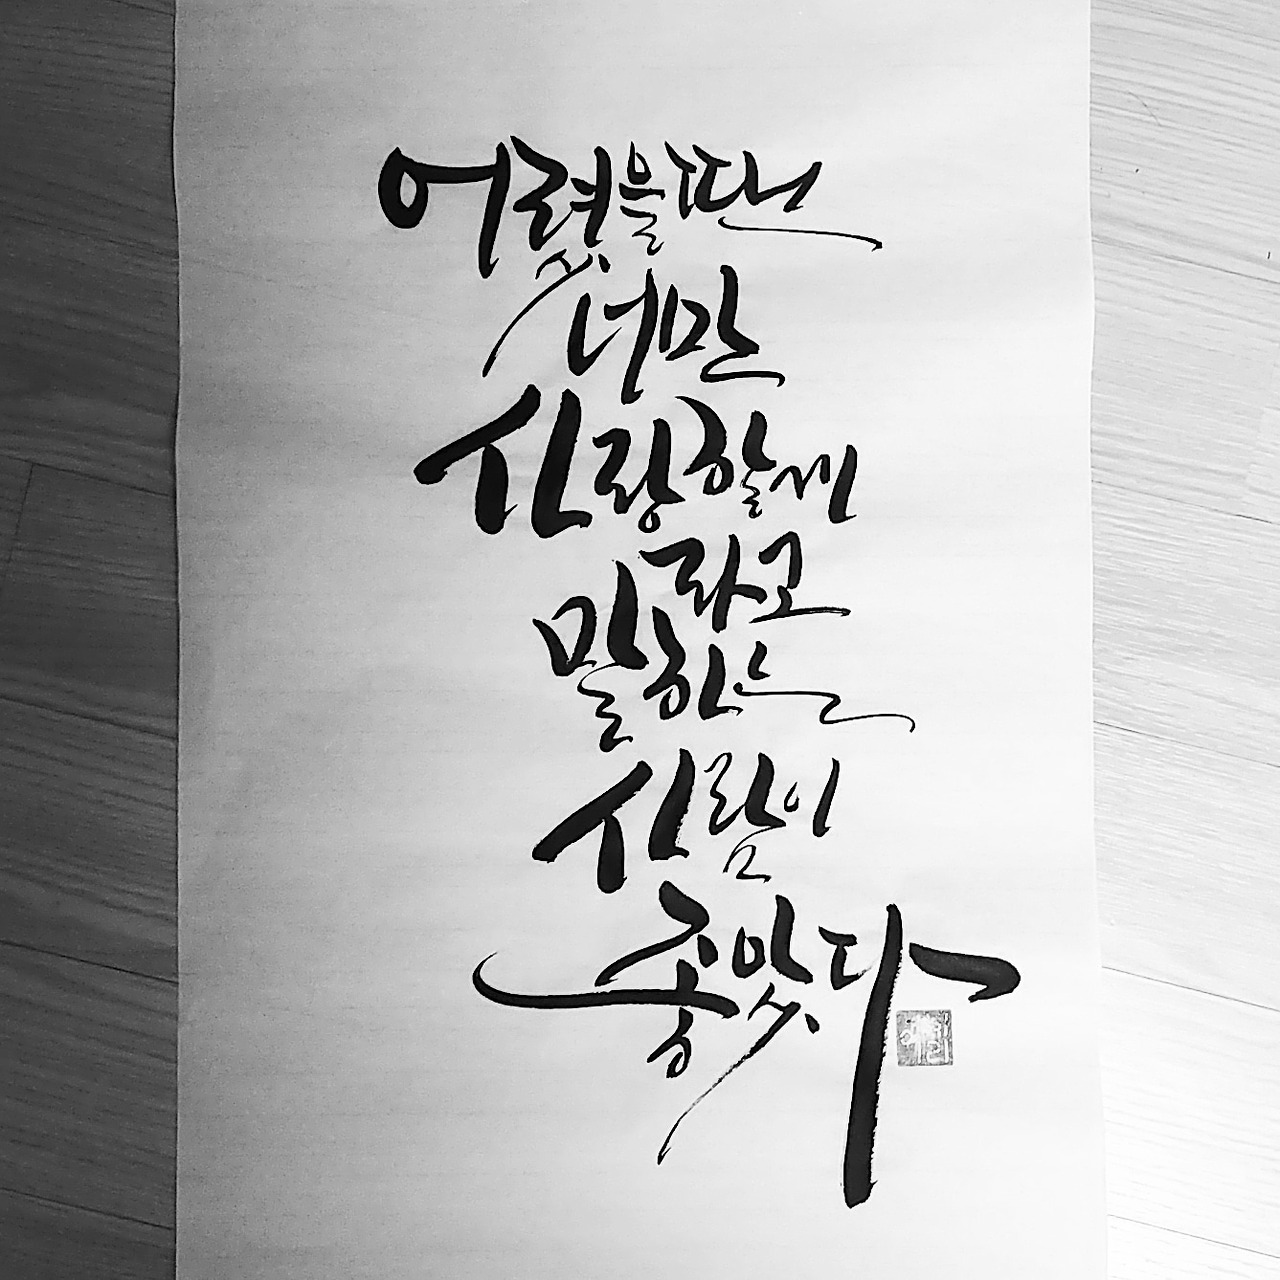 어렸을 땐
너만
사랑할게
라고
말하는
사람이
좋았다